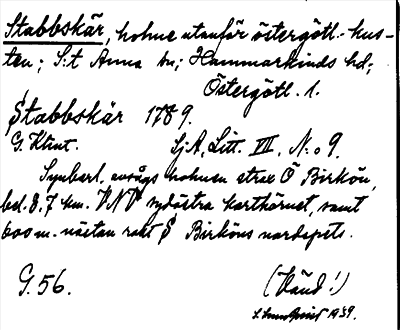 Stabbskär, holme utanför östergötl. kus-
ten; S:t Anna sn; Hammarkinds hd;
Östergötl. l.
Stabbskär 1789.
G. Klint. Sj.A, Litt. VIII, N:o 9.
Synberl. avsågs holmen strax Ö Birkön,
bel. 8,7 km. VNV sydöstra karthörnet, samt
600 m. nästan rakt S Birköns nordspets.
G. 56. (Vänd!)
1939.